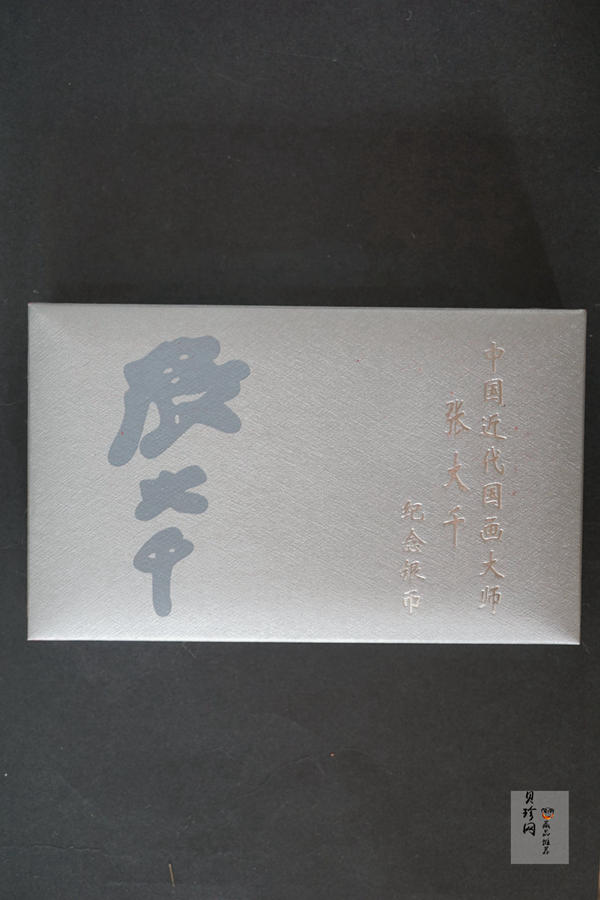 中国近代国画大师
张大千
纪念银币
大千
贝珍网
藏品推荐